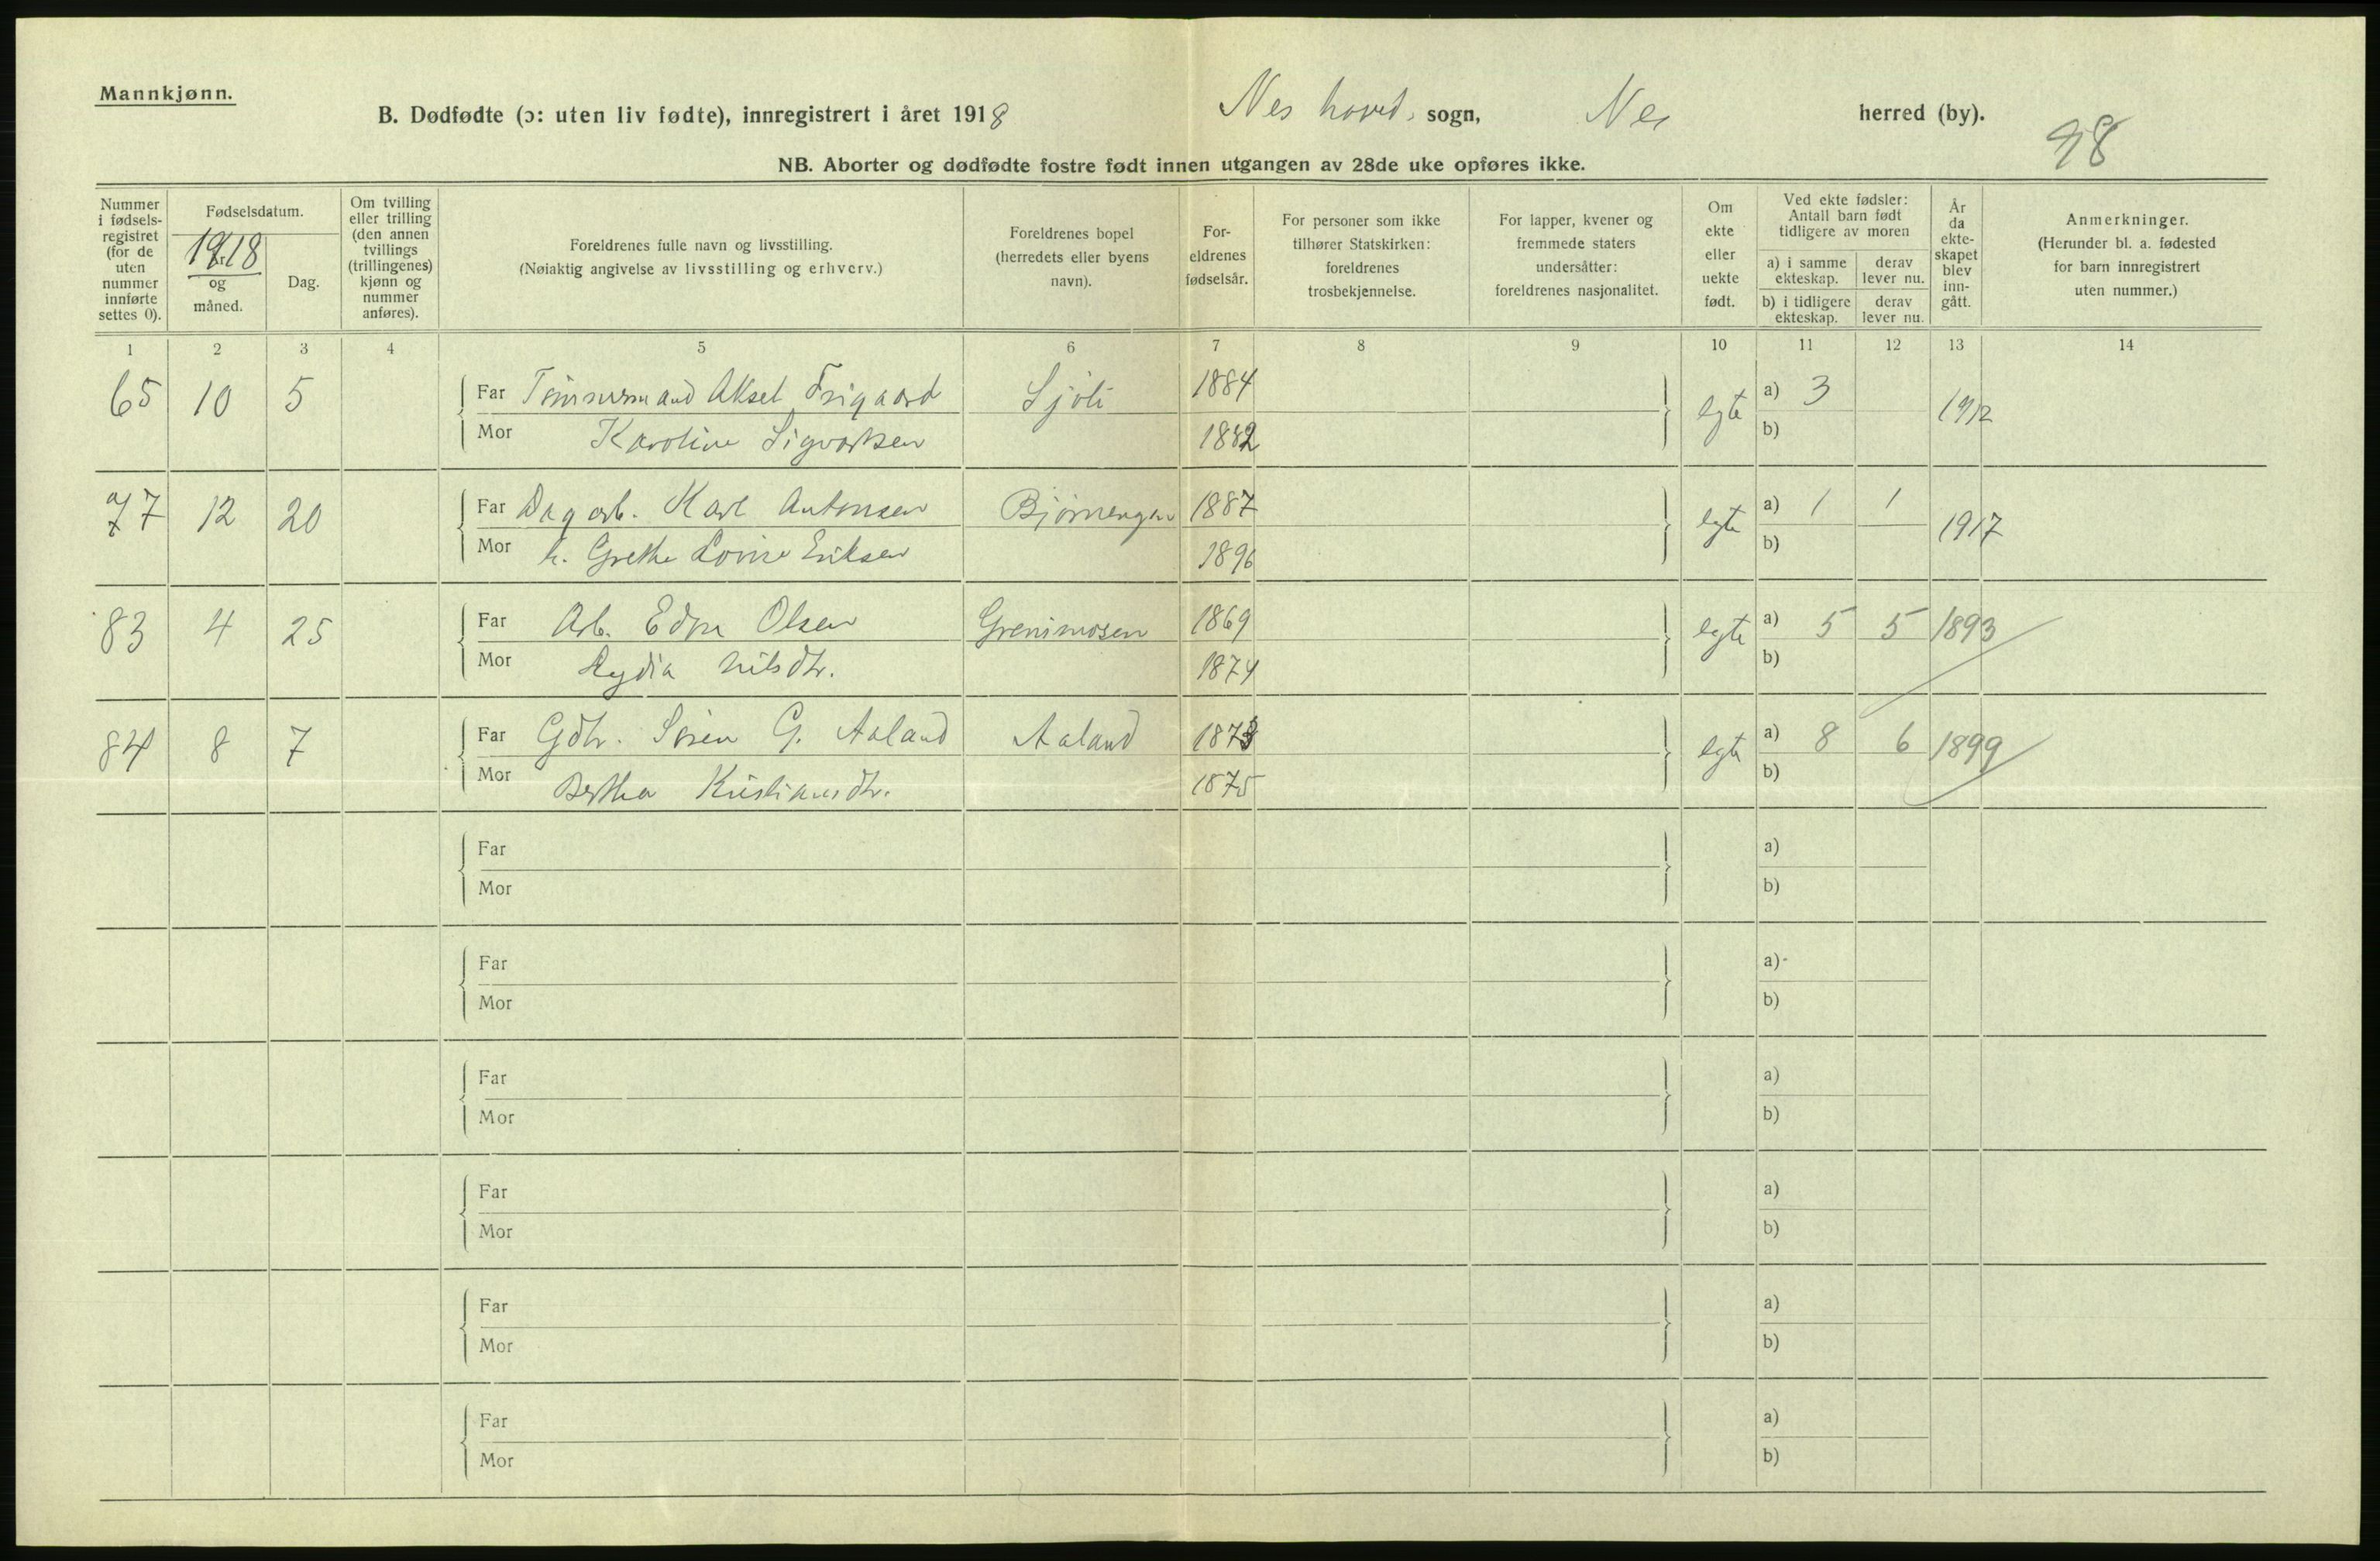 Mannkjønn.
B. Dødfødte (ɔ: uten liv fødte), innregistrert i året 1918 Nes hoved. sogn, Nes herred (by).
98
NB. Aborter og dødfødte fostre født innen utgangen av 28de uke opføres ikke.
Nummer i fødsels-registret (for de uten nummer innførte settes 0).
Fødselsdatum.
1918
og måned.
Dag.
Om tvilling eller trilling (den annen tvillings (trillingenes) kjønn og nummer anføres).
Foreldrenes fulle navn og livsstilling.
(Nøiaktig angivelse av livsstilling og erhverv.)
Foreldrenes bopel (herredets eller byens navn).
For-eldrenes fødselsår.
For personer som ikke tilhører Statskirken: foreldrenes trosbekjennelse.
For lapper, kvener og fremmede staters undersåtter: foreldrenes nasjonalitet.
Om ekte eller uekte født.
Ved ekte fødsler: Antall barn født tidligere av moren
a) i samme ekteskap. derav lever nu.
b) i tidligere ekteskap. derav lever nu.
År da ekte-skapet blev inn-gått.
Anmerkninger.
(Herunder bl. a. fødested for barn innregistrert uten nummer.)
1 2 3 4 5 6 7 8 9 10 11 12 13 14
65 10 5 Far Tømmermand Aksel Frigaard Sjøli 1884 egte a) 3 1912
Mor Karoline Sigvartsen 1882 b)
77 12 20 Far Dagarb. Karl Antonsen Bjørnengen 1887 egte a) 1 1 1917
Mor h. Grethe Lovise Eriksen 1896 b)
83 4 25 Far Arb. Edv. Olsen Grenimosen 1869 egte a) 5 5 1893
Mor Lydia Nilsdtr. 1874 b)
84 8 7 Far Gdbr. Søren G. Aaland Aaland 1873 egte a) 8 6 1899
Mor Berthe Kristiansdtr. 1875 b)
Far a)
Mor b)
Far a)
Mor b)
Far a)
Mor b)
Far a)
Mor b)
Far a)
Mor b)
Far a)
Mor b)